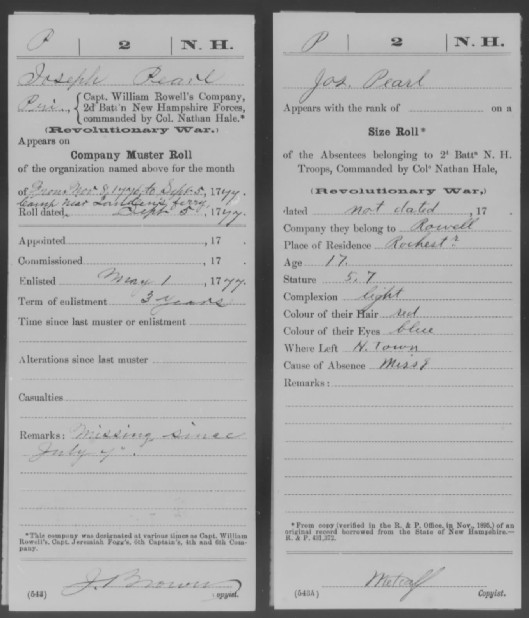 P | 2 | N. H.
Joseph Pearl
Pri., { Capt. William Rowell's Company,
2d Batt'n New Hampshire Forces,
commanded by Col. Nathan Hale.*
(Revolutionary War.)
Appears on
Company Muster Roll
of the organization named above for the month
of From Nov 8, 1776 to Sept 5, 1777.
Camp near Loudens ferry
Roll dated Sept 5, 1777.
Appointed , 17 .
Commissioned , 17 .
Enlisted May 1, 1777.
Term of enlistment 3 years
Time since last muster or enlistment
Alterations since last muster
Casualties
Remarks: Missing since
July 7".
*This company was designated at various times as Capt. William
Rowell's, Capt. Jeremiah Fogg's, 6th Captain's, 4th and 6th Com-
pany.
J. Brown
(542) Copyist.
P | 2 | N. H.
Jos. Pearl
Appears with the rank of on a
Size Roll*
of the Absentees belonging to 2d Batt N. H.
Troops, Commanded by Col Nathan Hale,
(Revolutionary War,)
dated not dated, 17 .
Company they belong to Rowell
Place of Residence Rochestr
Age 17.
Stature 5.7
Complexion light
Colour of their Hair red
Colour of their Eyes blue
Where Left H. town
Cause of Absence Missg
Remarks:
*From copy (verified in the R. & P. Office, in Nov., 1895,) of an
original record borrowed from the State of New Hampshire.—
R. & P. 431,372.
Metcalf
(543A) Copyist.